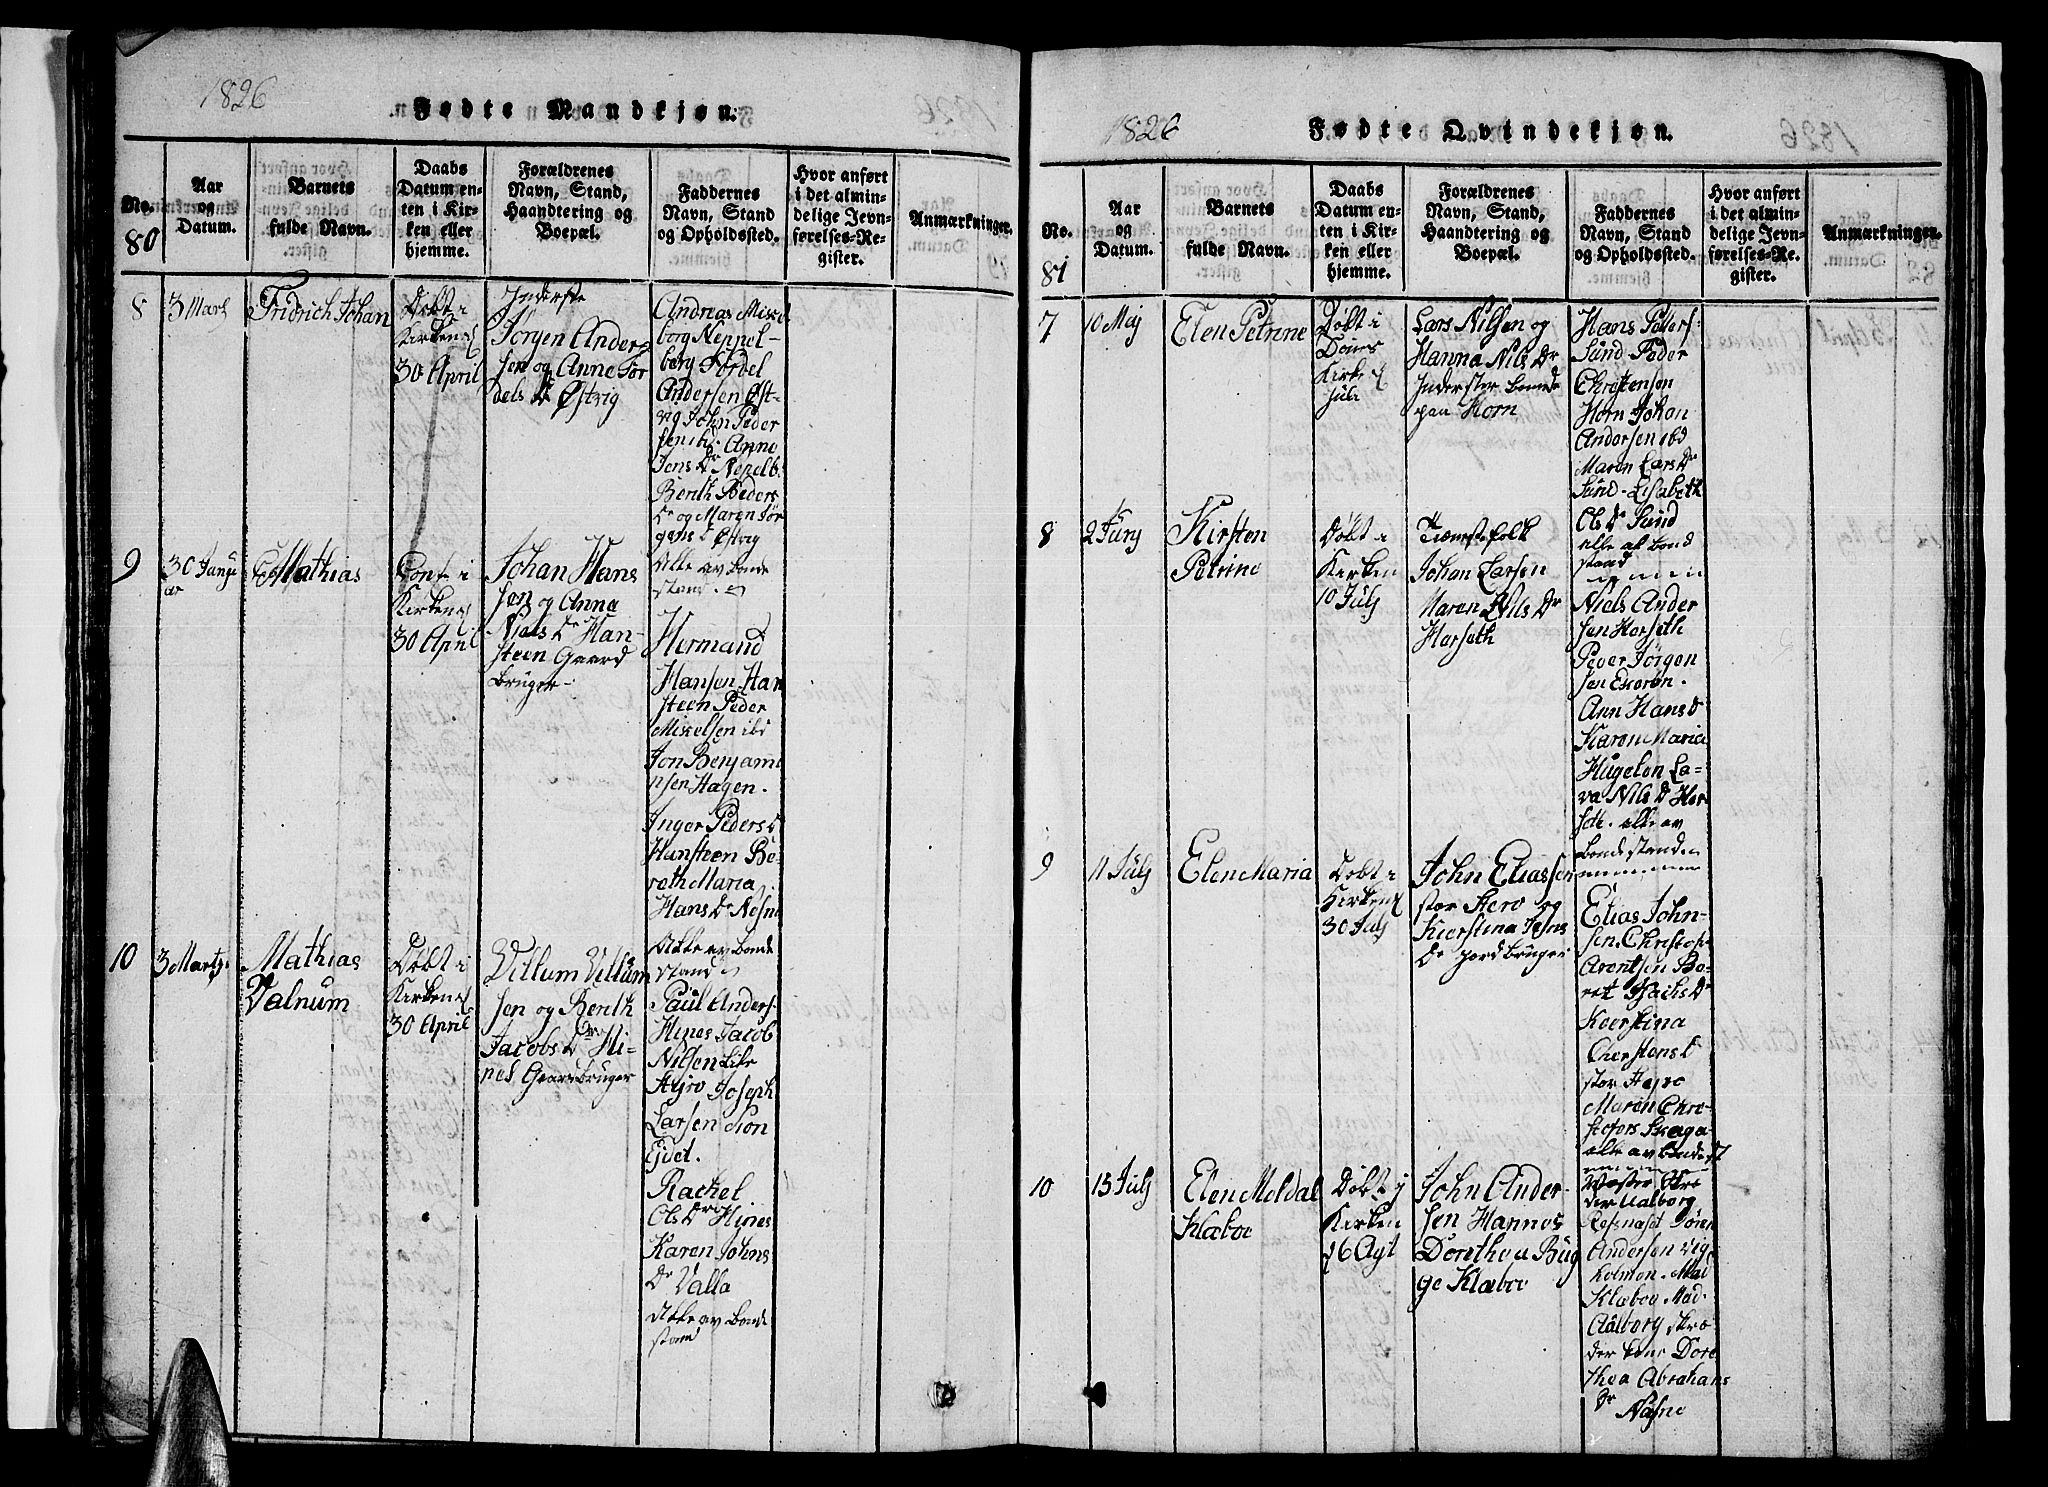 1826
Fødte Mandkjøn.
No.
80
Aar
og
Datum.
Barnets
fulde Navn.
Daabs
Datum en-
ten i Kir-
ken eller
hjemme.
Forældrenes
Navn, Stand,
Haandtering og
Boepæl.
Faddernes
Navn, Stand
og Opholdssted.
Hvor anført
i det almin-
delige Jevn-
førelses-Re-
gister.
Anmærkninger.
8
3 Marts
Fridrich Johan
Døbt i
Kirken
30 April
Inderste
Jørgen Ander
sen og Anne Tør
dels Dr Østvig
Andreas Mikel
borg Neppel-
berg Tørdel
Andersen Øst-
vig John Peder
sen ibd. Anne
Jens Dr Nepelb.
Berith Peders
Dr og Maren Jør
gens D Østvig
Alle av Bonde
stand.
9
30 Janu
ar
Mathias
Conf i
Kirken
30 April
Johan Hans
sen og Anna
Niels Dr Han-
steen Gaard
bruger
Hermand
Hansen Han
steen Peder
Mikelsen ibd
Jon Benjami
nsen Hagen.
Inger Peders D
Hansteen Be-
reth Maria
Hans Dr Nesne
Alle av Bonde
stand
10
3 Marts
Mathias
Valnum
Døbt i
Kirken
30 April
Villum Villum
sen og Berith
Jacobs Dr Hi-
nes Gaardbruger
Paul Anders.
Hines Jacob
Nilsen Lile
Hejro Joseph
Larsen Sion
Ejdet.
Rachel
Ols Dr Hines
Karen Johns
Dr Valla
Alle av Bonde
stand
1826
Fødte Qvindekjøn.
No.
81
Aar
og
Datum.
Barnets
fulde Navn.
Daabs
Datum en-
ten i Kir-
ken eller
hjemme.
Forældrenes
Navn, Stand,
Haandtering og
Boepæl.
Faddernes
Navn, Stand
og Opholdssted.
Hvor anført
i det almin-
delige Jevn-
førelses-Re-
gister.
Anmærkninger.
7
10 Maj
Elen Petrine
Døbt i
Dønes
Kirke
Juli
Lars Nilsen og
Hanna Nils Dr
Inderster boende
paa Horn
Hans Peters-
Sund Peder
Christensen
Horn Johan
Andersen ibd
Maren Lars Dr
Sund Elisabeth
Ols Dr Sund
alle af Bond
stand
8
2 Junj
Kirsten
Petrine
Døbt i
Kirken
10 Julj
Tienestefolk
Johan Larsen
Maren Nils Dr
Horseth
Niels Ander
sen Horseth
Peder Jørgen
sen
Ann Hans D
Karen Maria
Hugelen La-
va Nils D Hor
seth. alle av
bonde stand
9
11 Julj
Elen Maria
Døbt i
Kirken
30 Julj
John Eliassen
stor Hero og
Kierstina Jens
Dr jordbruger
Elias John-
sen. Christop
Arentsen Be-
ret Isachs Dr
Keerstina
Cherstens D
stor Hejro
Maren Chri-
stofers Skaga
alle av bondest
10
15 Julj
Elen Moldal
Klæboe
Døbt i
Kirken
16 Agt
John Ander-
sen Hannes
Dorethea Bug
ge Klæboe
der Aalborg
Rosnast Sören
Andersen vig
holmen. Mad
Klæboe Mad.
Aalborg skræ
der Dore
thea Abrahams
Dr Næsne